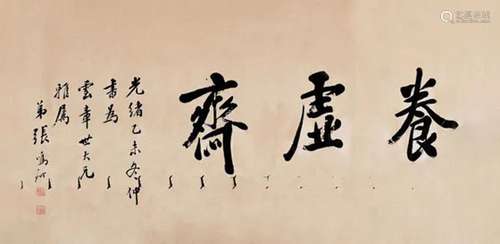 養虛齋
光緒乙未冬仲
書為
雲章世大兄
雅屬
弟張